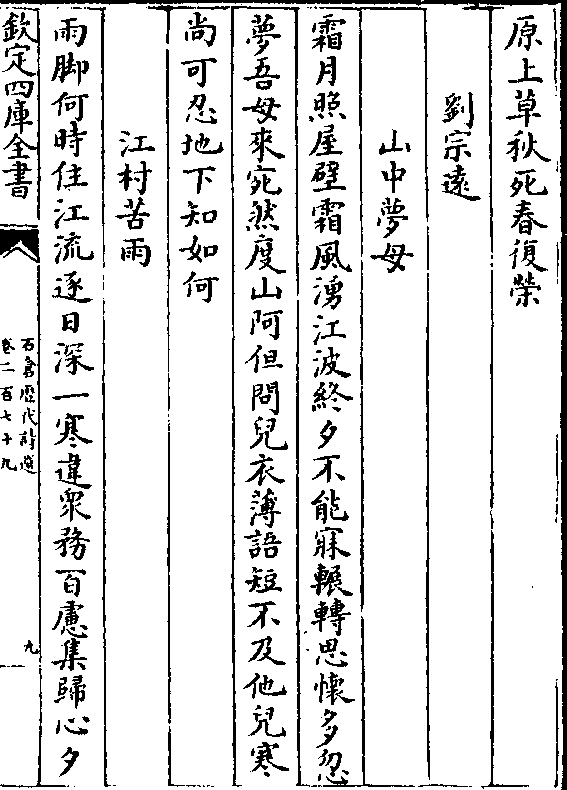 原上草秋死春復榮
劉宗遠
山中夢母
霜月照屋壁霜風湧江波終夕不能寐輾轉思懷多忽
夢吾母來宛然度山阿但問兒衣薄語短不及他兒寒
尚可忍地下知如何
江村苦雨
雨脚何時住江流逐日深一寒違衆務百慮集歸心夕
欽定四庫全書
石倉歷代詩選
卷二百七十九
九